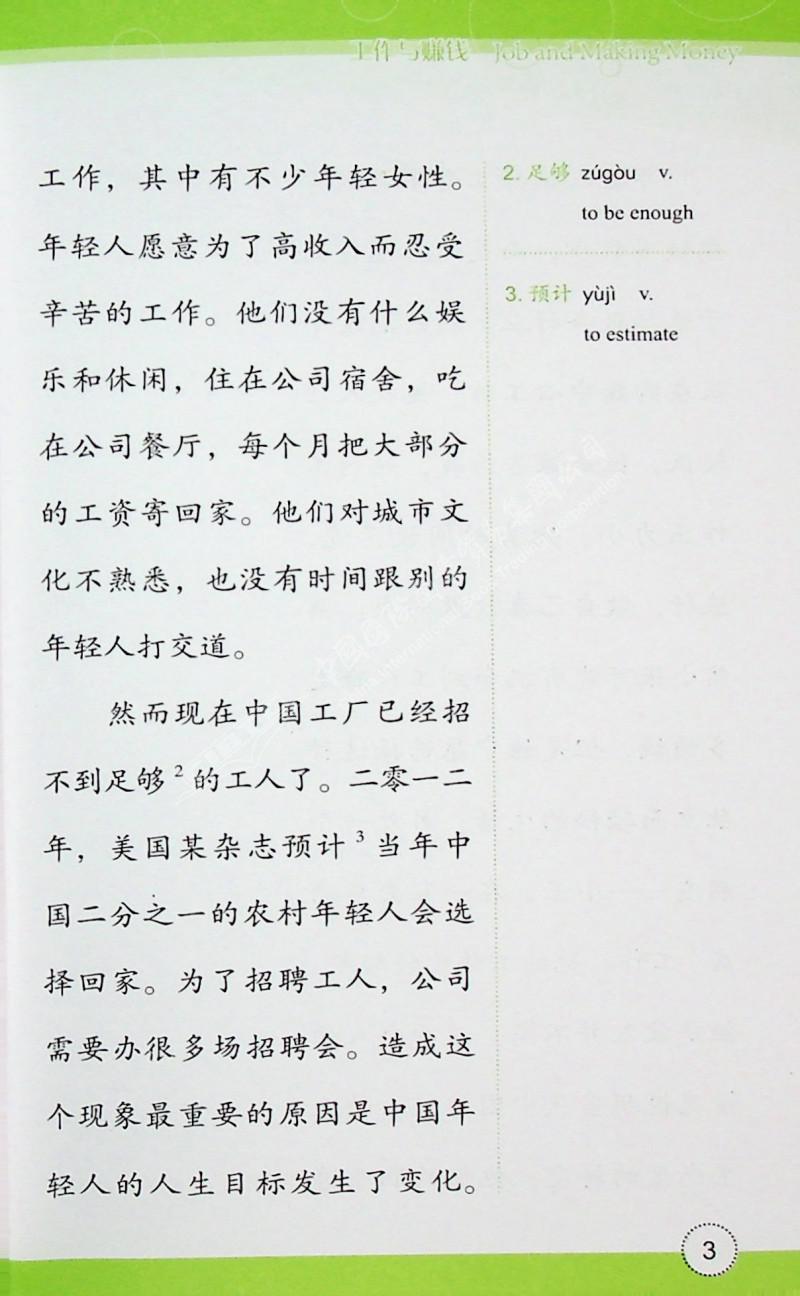 工作与赚钱 Job and Making Money
工作，其中有不少年轻女性。
年轻人愿意为了高收入而忍受
辛苦的工作。他们没有什么娱
乐和休闲，住在公司宿舍，吃
在公司餐厅，每个月把大部分
的工资寄回家。他们对城市文
化不熟悉，也没有时间跟别的
年轻人打交道。
然而现在中国工厂已经招
不到足够2的工人了。二零一二
年，美国某杂志预计3当年中
国二分之一的农村年轻人会选
择回家。为了招聘工人，公司
需要办很多场招聘会。造成这
个现象最重要的原因是中国年
轻人的人生目标发生了变化。
2. 足够 zúgòu v.
to be enough
3. 预计 yùjì v.
to estimate
3